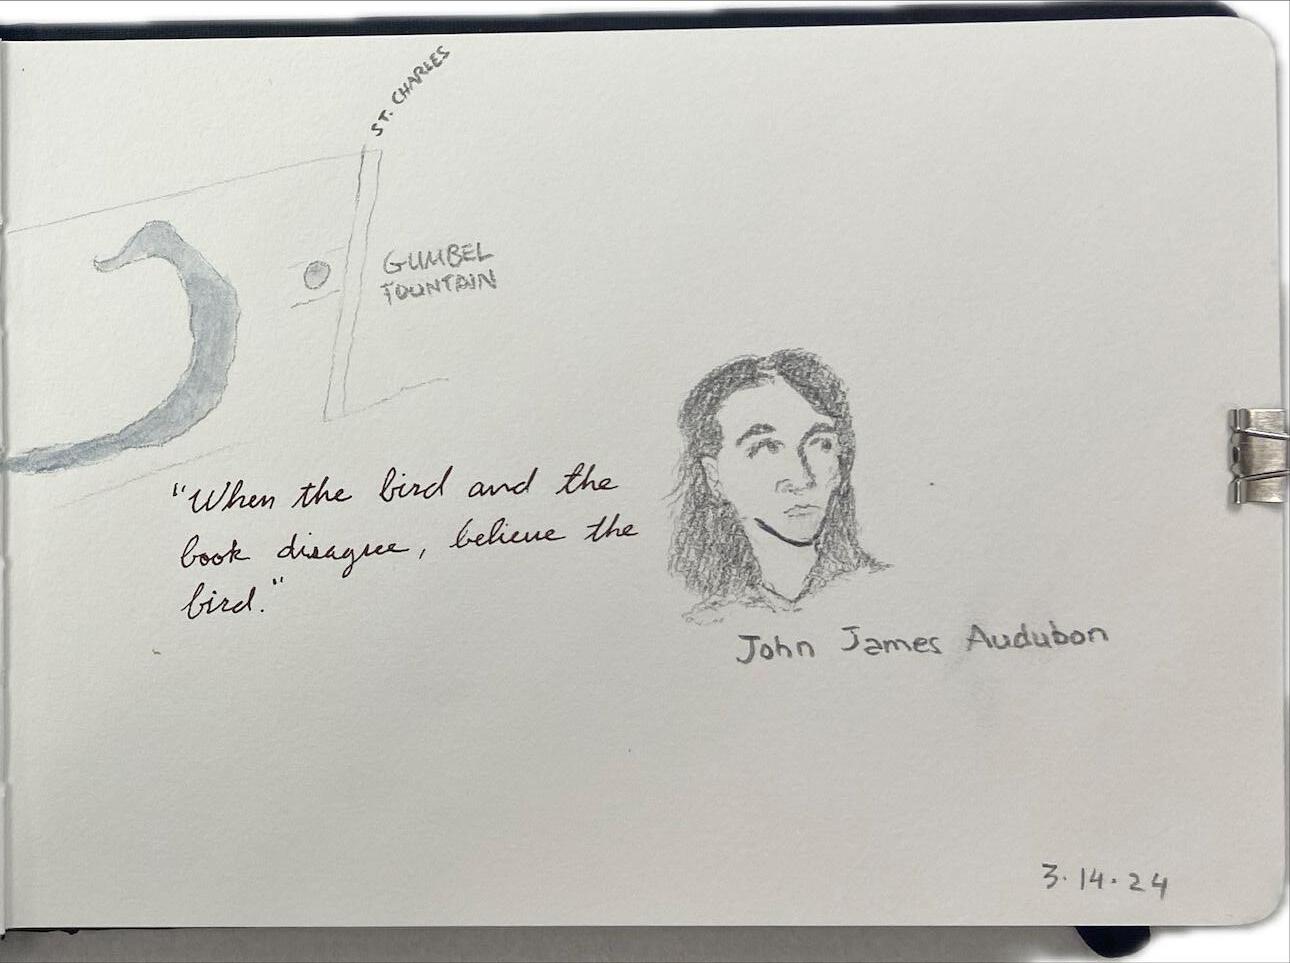 ST. CHARLES
GUMBEL
FOUNTAIN
"When the bird and the
book disagree, believe the
bird."
John James Audubon
3.14.24